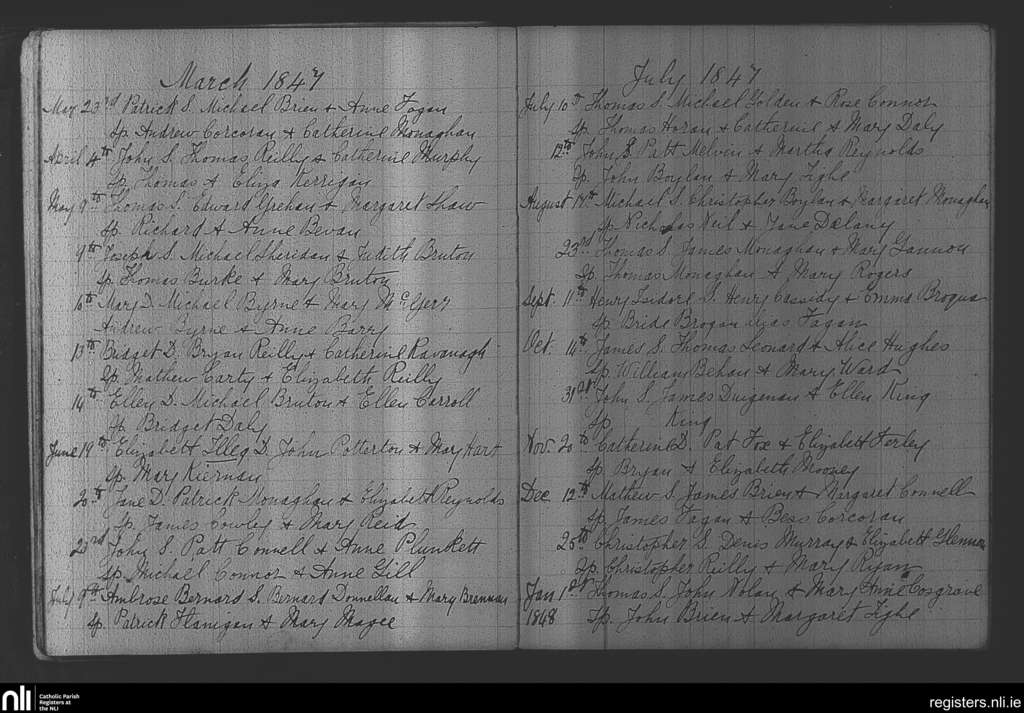 March 1847
Mar 23rd Patrick S. Michael Brien & Anne Fagan
Sp. Andrew Corcoran & Catherine Monaghan
April 4th John S. Thomas Reilly & Catherine Murphy
Sp. Thomas & Eliza Kerrigan
May 9th Thomas S. Edward Grehan & Margaret Shaw
Sp. Richard & Anne Bevan
9th Joseph S. Michael Sheridan & Judith Bruton
Sp. Thomas Burke & Mary Bruton
6th Mary D. Michael Byrne & Mary
Andrew Byrne & Anne Barry
13th Bridget D. Bryan Reilly & Catherine Kavanagh
Sp. Mathew Carty & Elizabeth Reilly
14th Ellen D. Michael Bruton & Ellen Carroll
Sp. Bridget Daly
June 19th Elizabeth Illeg D. John Potterton & Mary Hart
Sp. Mary Kiernan
20th Jane D. Patrick Monaghan & Elizabeth Reynolds
Sp. James Cowley & Mary Reid
23rd John S. Patt Connell & Anne Plunkett
Sp. Michael Connor & Anne Gill
July 9th Ambrose Bernard S. Bernard Donnellan & Mary Brennan
Sp. Patrick Flanigan & Mary Magee
July 1847
July 10th Thomas S. Michael Golden & Rose Connor
Sp. Thomas Horan & Catherine & Mary Daly
12th John S. Patt Melvin & Martha Reynolds
Sp. John Boylan & Mary Tighe
August 14th Michael S. Christopher Boylan & Margaret Monaghan
Sp. Nicholas Neil & Jane Delaney
23rd Thomas S. James Monaghan & Mary Gannon
Sp. Thomas Monaghan & Mary Rogers
Sept. 11th Henry Isidore S. Henry Cassidy & Emma Brogan
Sp. Bride Brogan alias Fagan
Oct. 14th James S. Thomas Leonard & Alice Hughes
Sp. William Behan & Mary Ward
31st John S. James Durgenan & Ellen King
Sp. King
Nov. 20th Catherine D. Pat Fox & Elizabeth Ferley
Sp. Bryan & Elizabeth Mooney
Dec 12th Mathew S. James Brien & Margaret Connell
Sp. James Fagan & Bess Corcoran
25th Christopher S. Denis Murray & Elizabeth Glennon
Sp. Christopher Reilly & Mary Ryan
Jan 1st Thomas S. John Nolan & Mary Anne Cosgrave
1848 Sp. John Brien & Margaret Tighe
nli Catholic Parish
Registers at
the NLI
registers.nli.ie